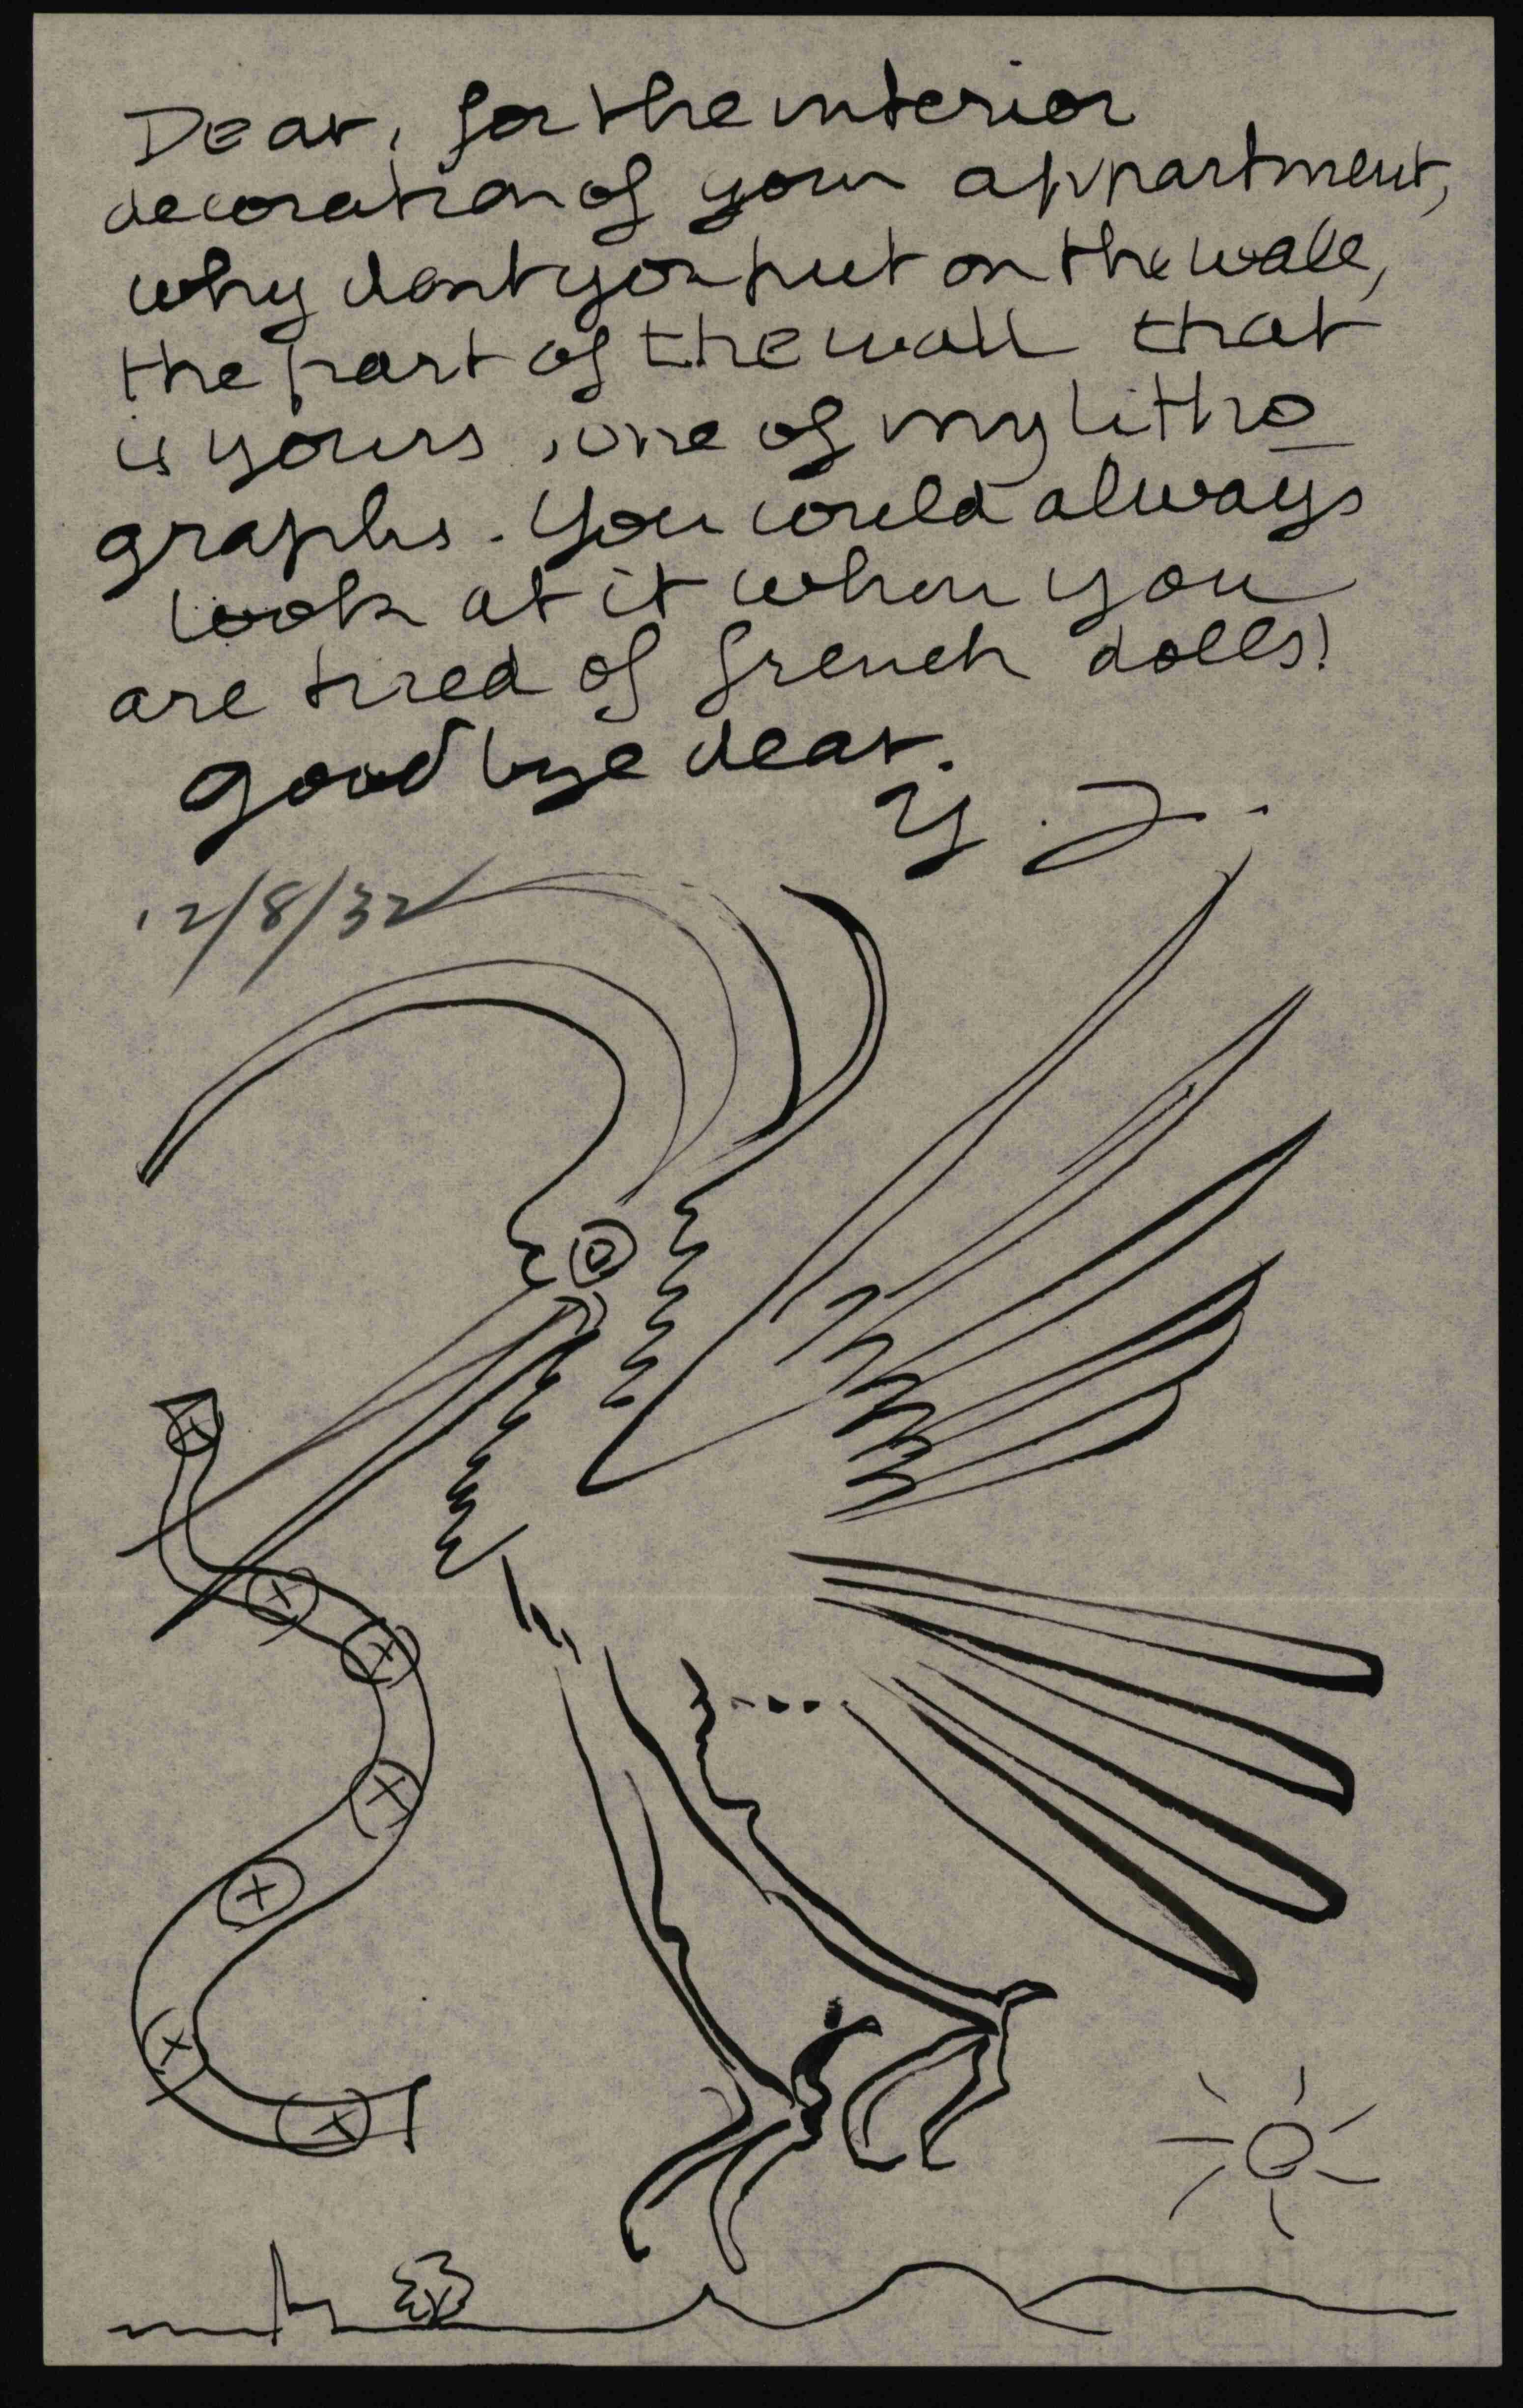 Dear, for the interior
decoration of your appartment,
why dont you put on the wall,
the part of the wall that
is yours, one of my litho
graphs. You could always
look at it when you
are tired of french dolls!
good bye dear.
Y. J.
12/8/32